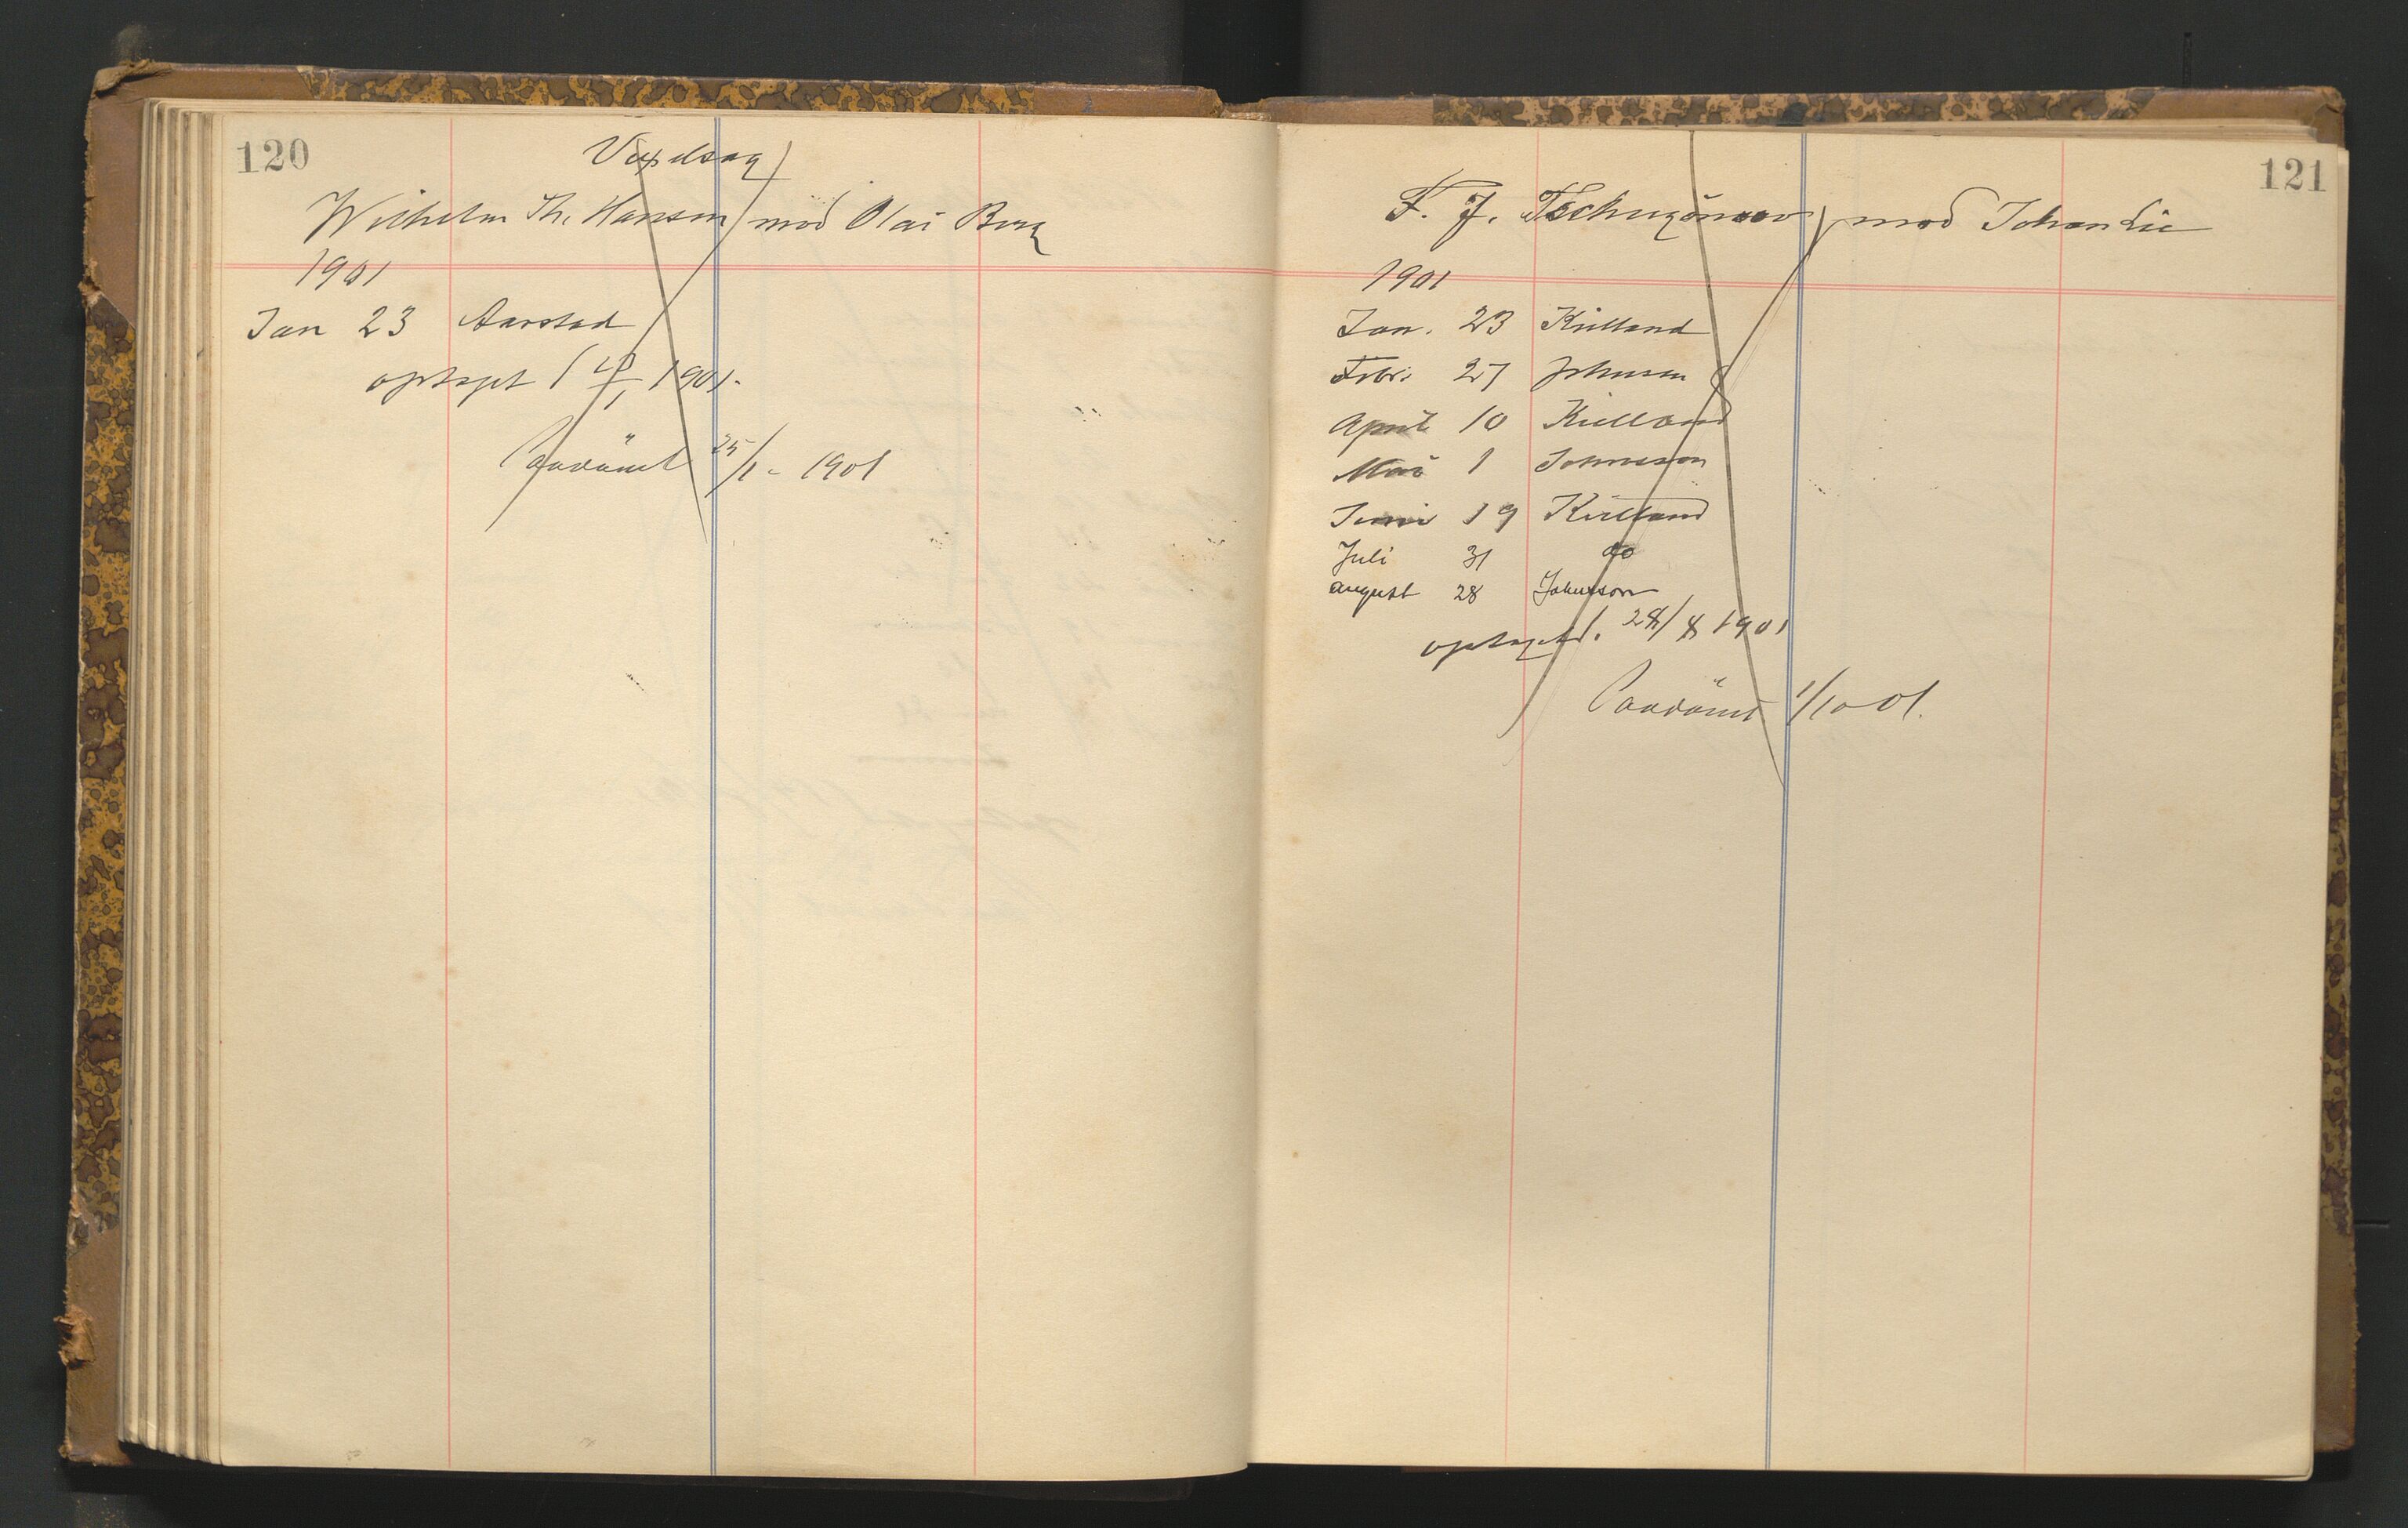 120
Vexelsag
Wilhelm Th. Hansen mod Olai Berg
1901
Jan 23 Aarstad
optaget 1901.
Paadömt 25/1 - 1901
121
F. J. mod Johan Lie
1901
Jan. 23 Kielland
Febr. 27 Johnson
April 10 Kielland
Mai 1 Johnsson
Juni 19 Kielland
Juli 31 do
august 28 Johnsson
optaget d. 28/8 1901
Paadömt 1/10 01.